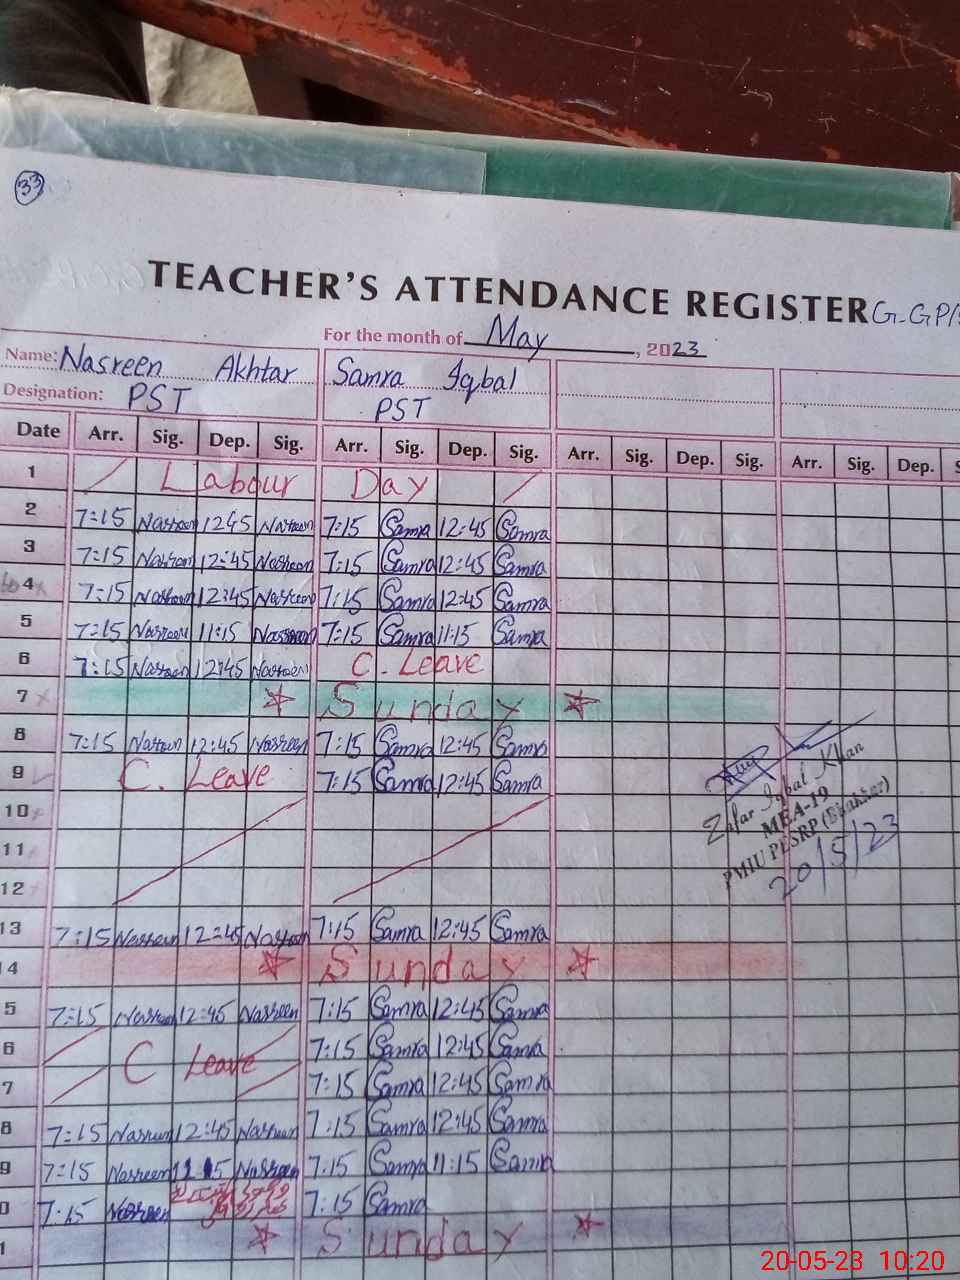 33
TEACHER'S ATTENDANCE REGISTER G.GP/S
For the month of May, 2023
Name: Nasreen Akhtar Samra Iqbal
Designation: PST PST
Date Arr. Sig. Dep. Sig. Arr. Sig. Dep. Sig. Arr. Sig. Dep. Sig. Arr. Sig. Dep. S
1 Labour Day
2 7:15 Nasreen 1245 Nasreen 7:15 Samra 12:45 Samra
3 7:15 Nasreen 12:45 Nasreen 7:15 Samra 12:45 Samra
4 7:15 Nasreen 12:45 Nasreen 7:15 Samra 12:45 Samra
5 7:15 Nasreen 11:15 Nasreen 7:15 Samra 11:15 Samra
6 7:15 Nasreen 12:45 Nasreen C. Leave
7 Sunday
8 7:15 Nasreen 12:45 Nasreen 7:15 Samra 12:45 Samra
9 C. Leave 7:15 Samra 12:45 Samra
10
11
12
Zafar Iqbal Khan
MEA-19
PMIU PESRP (Bhakkar)
20/5/23
13 7:15 Nasreen 12:45 Nasreen 7:15 Samra 12:45 Samra
4 Sunday
5 7:15 Nasreen 12:45 Nasreen 7:15 Samra 12:45 Samra
6 C Leave 7:15 Samra 12:45 Samra
7 7:15 Samra 12:45 Samra
8 7:15 Nasreen 12:45 Nasreen 7:15 Samra 12:45 Samra
9 7:15 Nasreen 11:15 Nasreen 7:15 Samra 11:15 Samra
0 7:15 Nasreen 7:15 Samra
1 Sunday
20-05-23 10:20